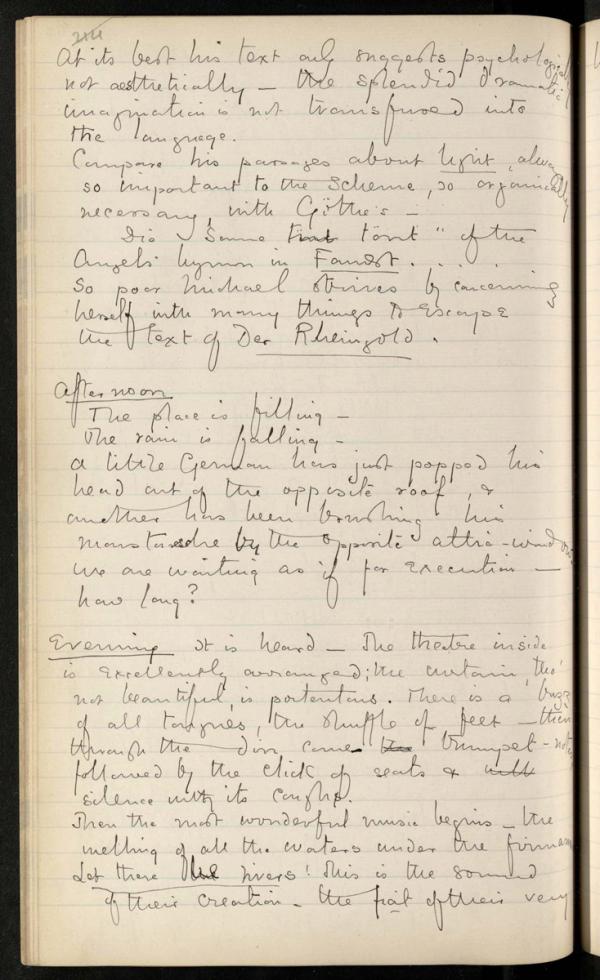 At its best his text only suggests psychologically
not aesthetically – the splendid dramatic
imagination is not transfused into
the language.
Compare his passages about light, always
so important to the Scheme, so organically
necessary, with Göthe's –
Die Sonne tönt " of the
Angels' hymn in Faust. . . .
So poor Michael strives by concerning
herself with many things to escape
the text of Der Rheingold.
Afternoon
The place is filling –
The rain is falling –
a little German has just popped his
head out of the opposite roof, &
another has been brushing his
moustache by the opposite attic-window
we are waiting as if for execution –
how long?
Evening It is heard – The theatre inside
is excellently arranged; the curtain, tho'
not beautiful, is portentous. There is a buzz
of all tongues, the shuffle of feet – then
through the din come trumpet-notes
followed by the click of seats &
silence with its coughs.
Then the most wonderful music begins – the
welling of all the waters under the firmam
Let there be rivers! This is the sound
of their creation – the fiat of their very